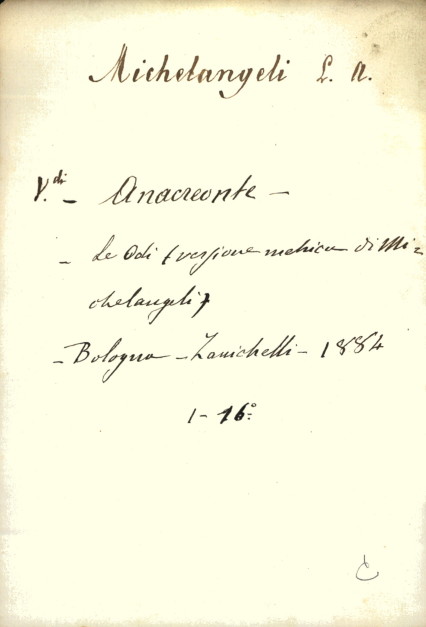 Michelangeli L. A.
V.di - Anacreonte -
- Le Odi (versione metrica di Mi=
chelangeli)
- Bologna - Zanichelli - 1884
1 - 16°=
C